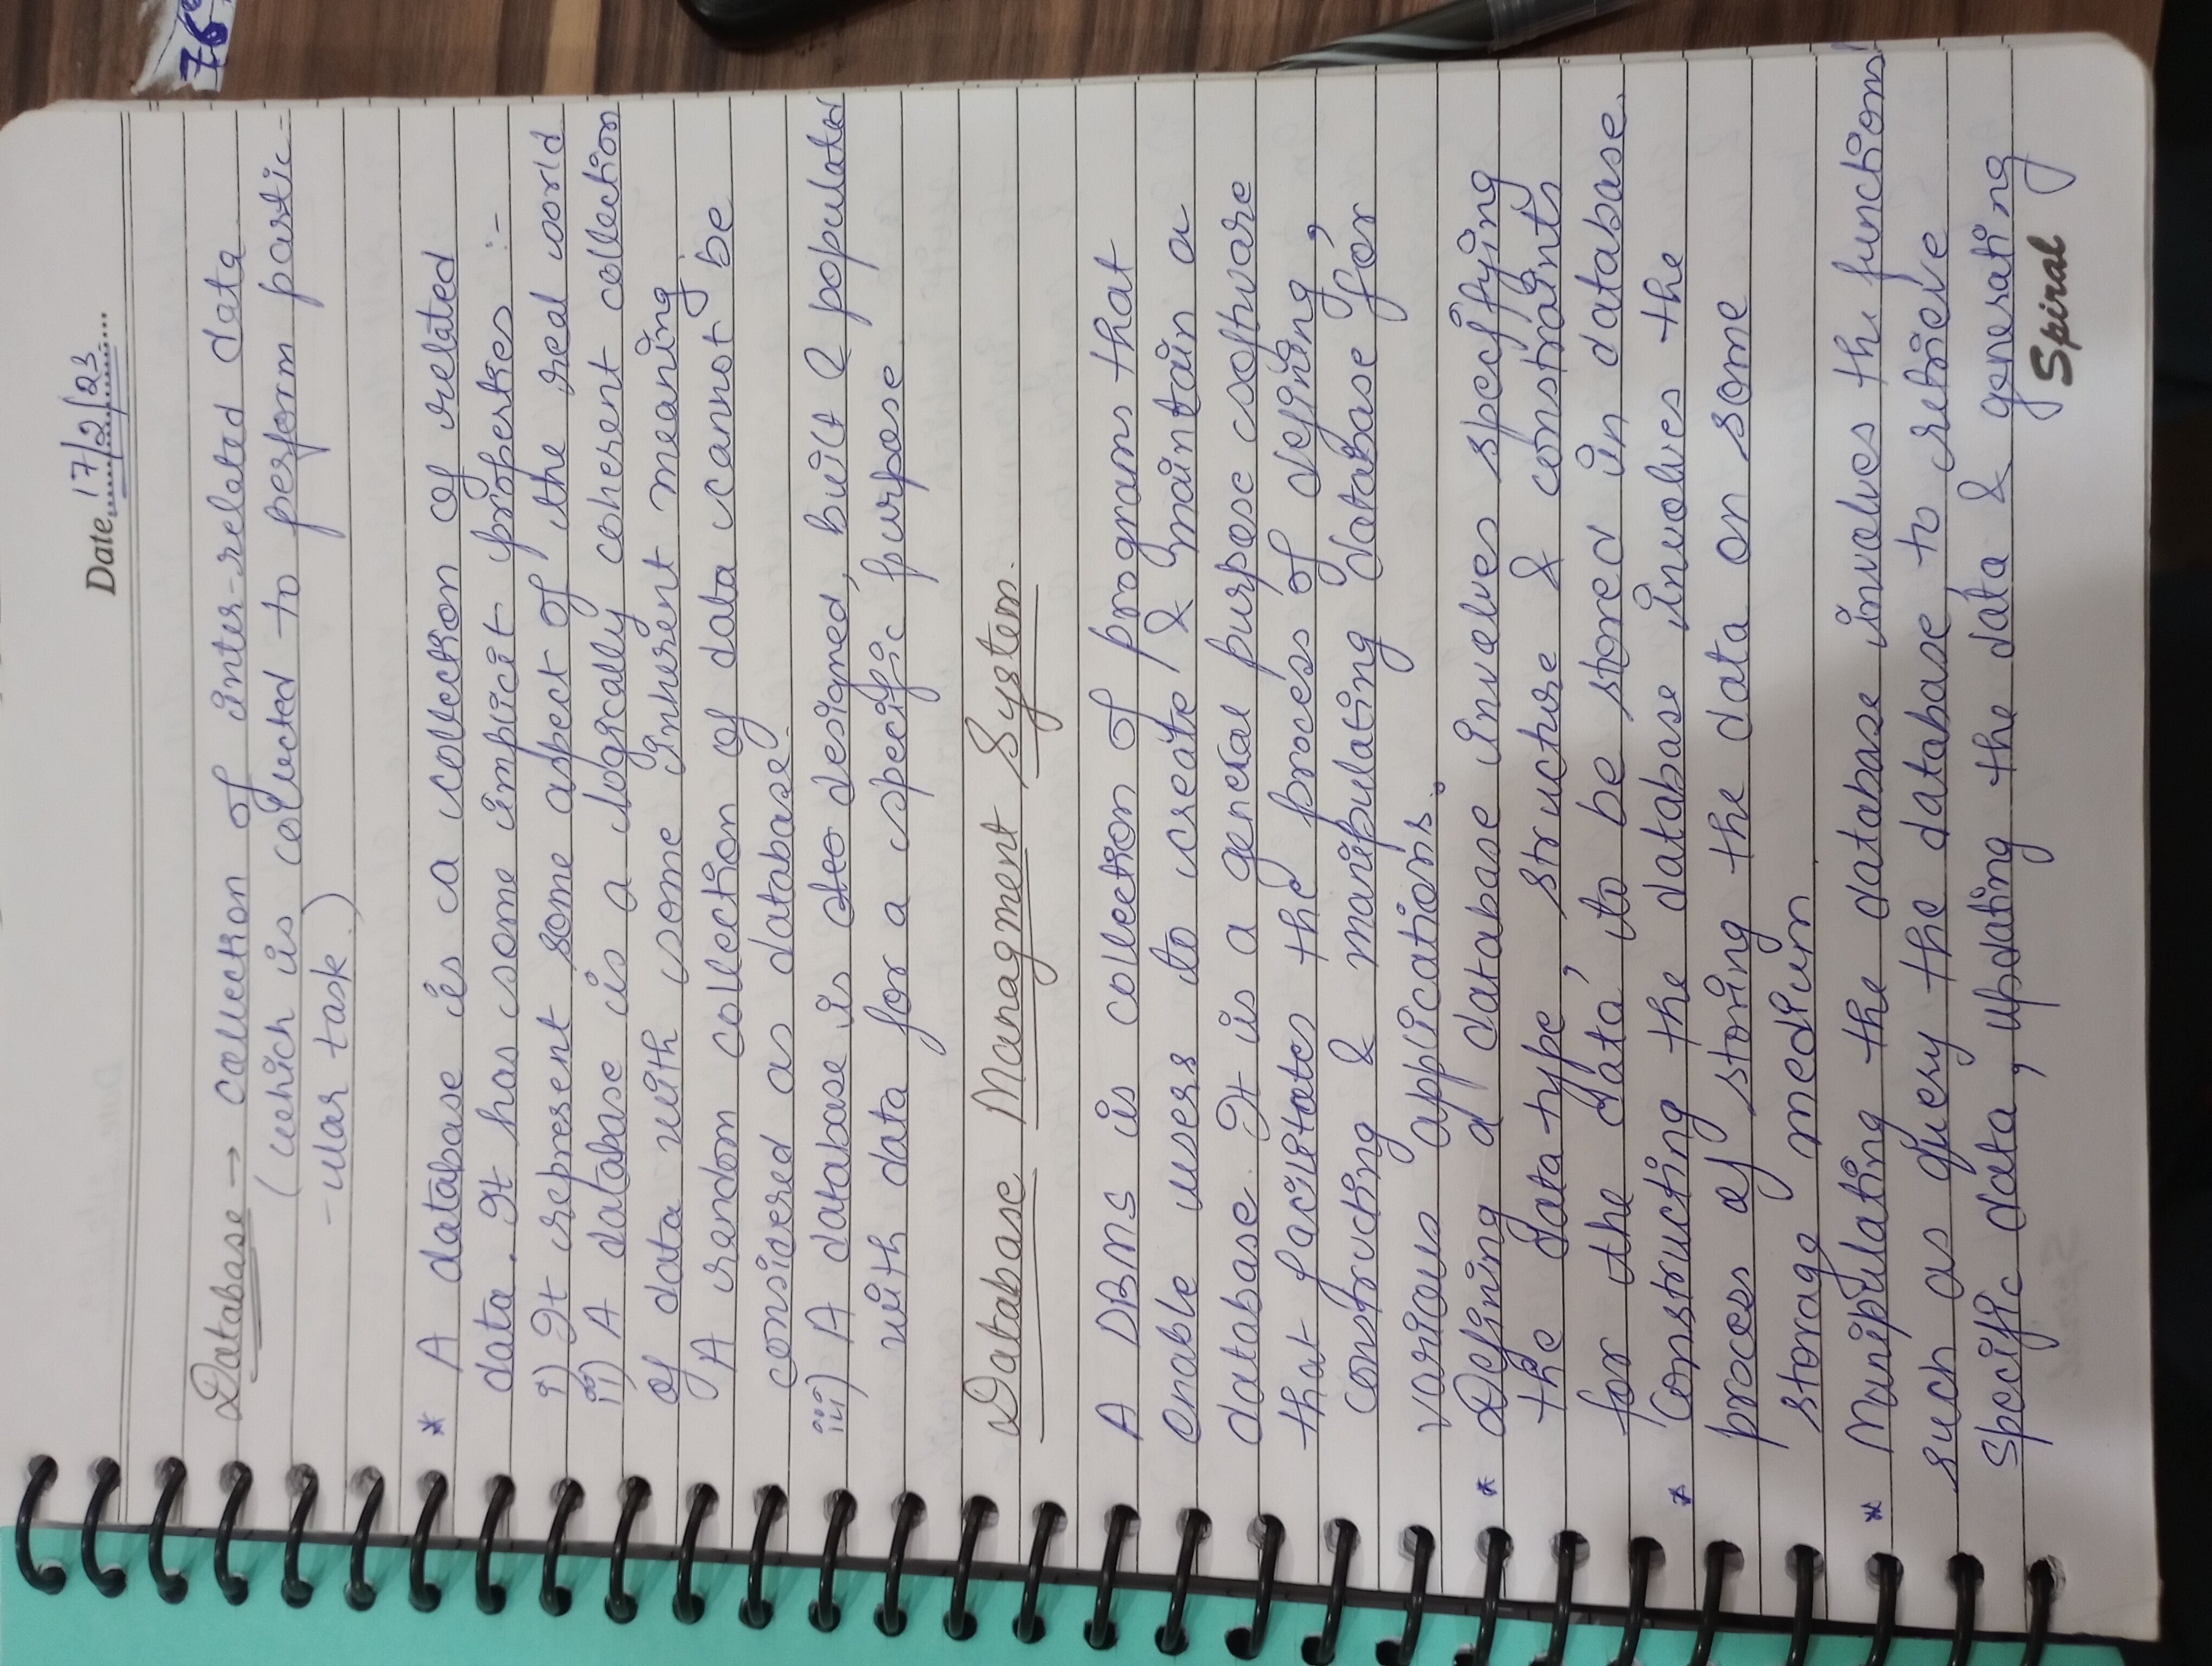 Date 17/2/23
76
Database → collection of inter-related data
(which is collected to perform partic-
-ular task.)
* A database is a collection of related
data. It has some implicit properties :-
i) It represent some aspect of the real world
ii) A database is a logically coherent collection
of data with some inherent meaning.
A random collection of data cannot be
considered as database.
iii) A database is designed, built & populated
with data for a specific purpose.
Database Managment System.
A DBMS is collection of programs that
enable users to create & maintain a
database. It is a general purpose software
that facilitates the process of defining,
constructing & manipulating database for
various applications.
* Defining a database involves specifying
the data type, structure & constraints
for the data to be stored in database.
* Constructing the database involves the
process of storing the data on some
storage medium.
* Manipulating the database involves the functions
such as query the database, to retrieve
specific data, updating the data & generating
Spiral